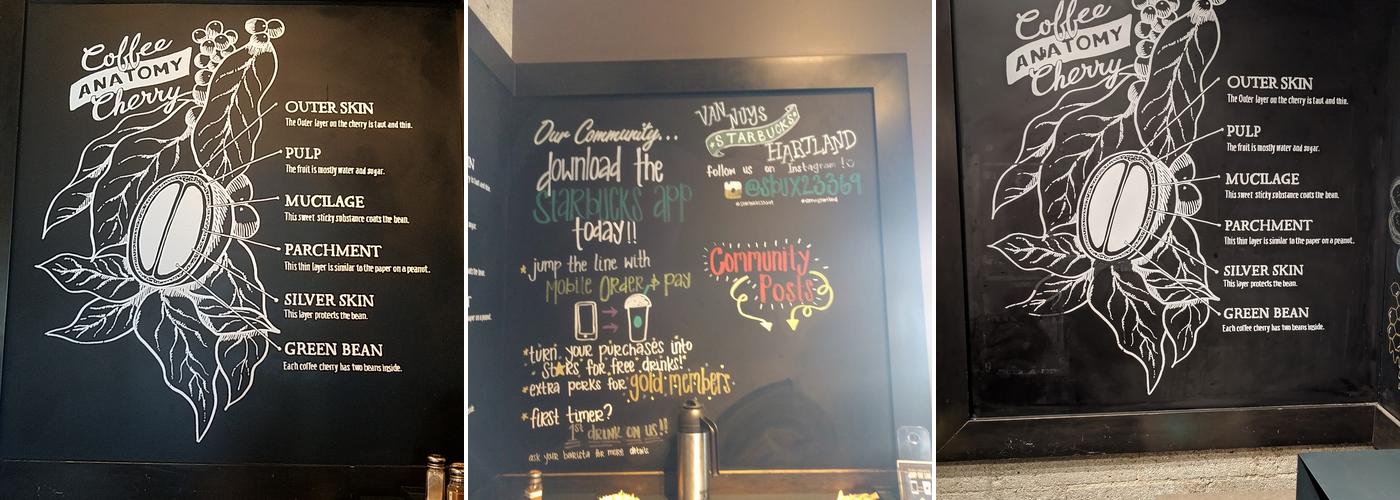 Coffee
ANATOMY
Cherry
OUTER SKIN
The Outer layer on the cherry is taut and thin.
PULP
The fruit is mostly water and sugar.
MUCILAGE
This sweet sticky substance coats the bean.
PARCHMENT
This thin layer is similar to the paper on a peanut.
SILVER SKIN
This layer protects the bean.
GREEN BEAN
Each coffee cherry has two beans inside.
Our Community...
download the
Starbucks app
today!!
*jump the line with
Mobile Order & pay
*turn your purchases into
stars for free drinks!
*extra perks for gold members
*first timer?
1st drink on us!!
ask your barista for more details
VAN NUYS
*STARBUCKS*
HARTLAND
follow us on Instagram!
@sbux23369
Community
Posts
Coffee
ANATOMY
Cherry
OUTER SKIN
The Outer layer on the cherry is taut and thin.
PULP
The fruit is mostly water and sugar.
MUCILAGE
This sweet sticky substance coats the bean.
PARCHMENT
This thin layer is similar to the paper on a peanut.
SILVER SKIN
This layer protects the bean.
GREEN BEAN
Each coffee cherry has two beans inside.